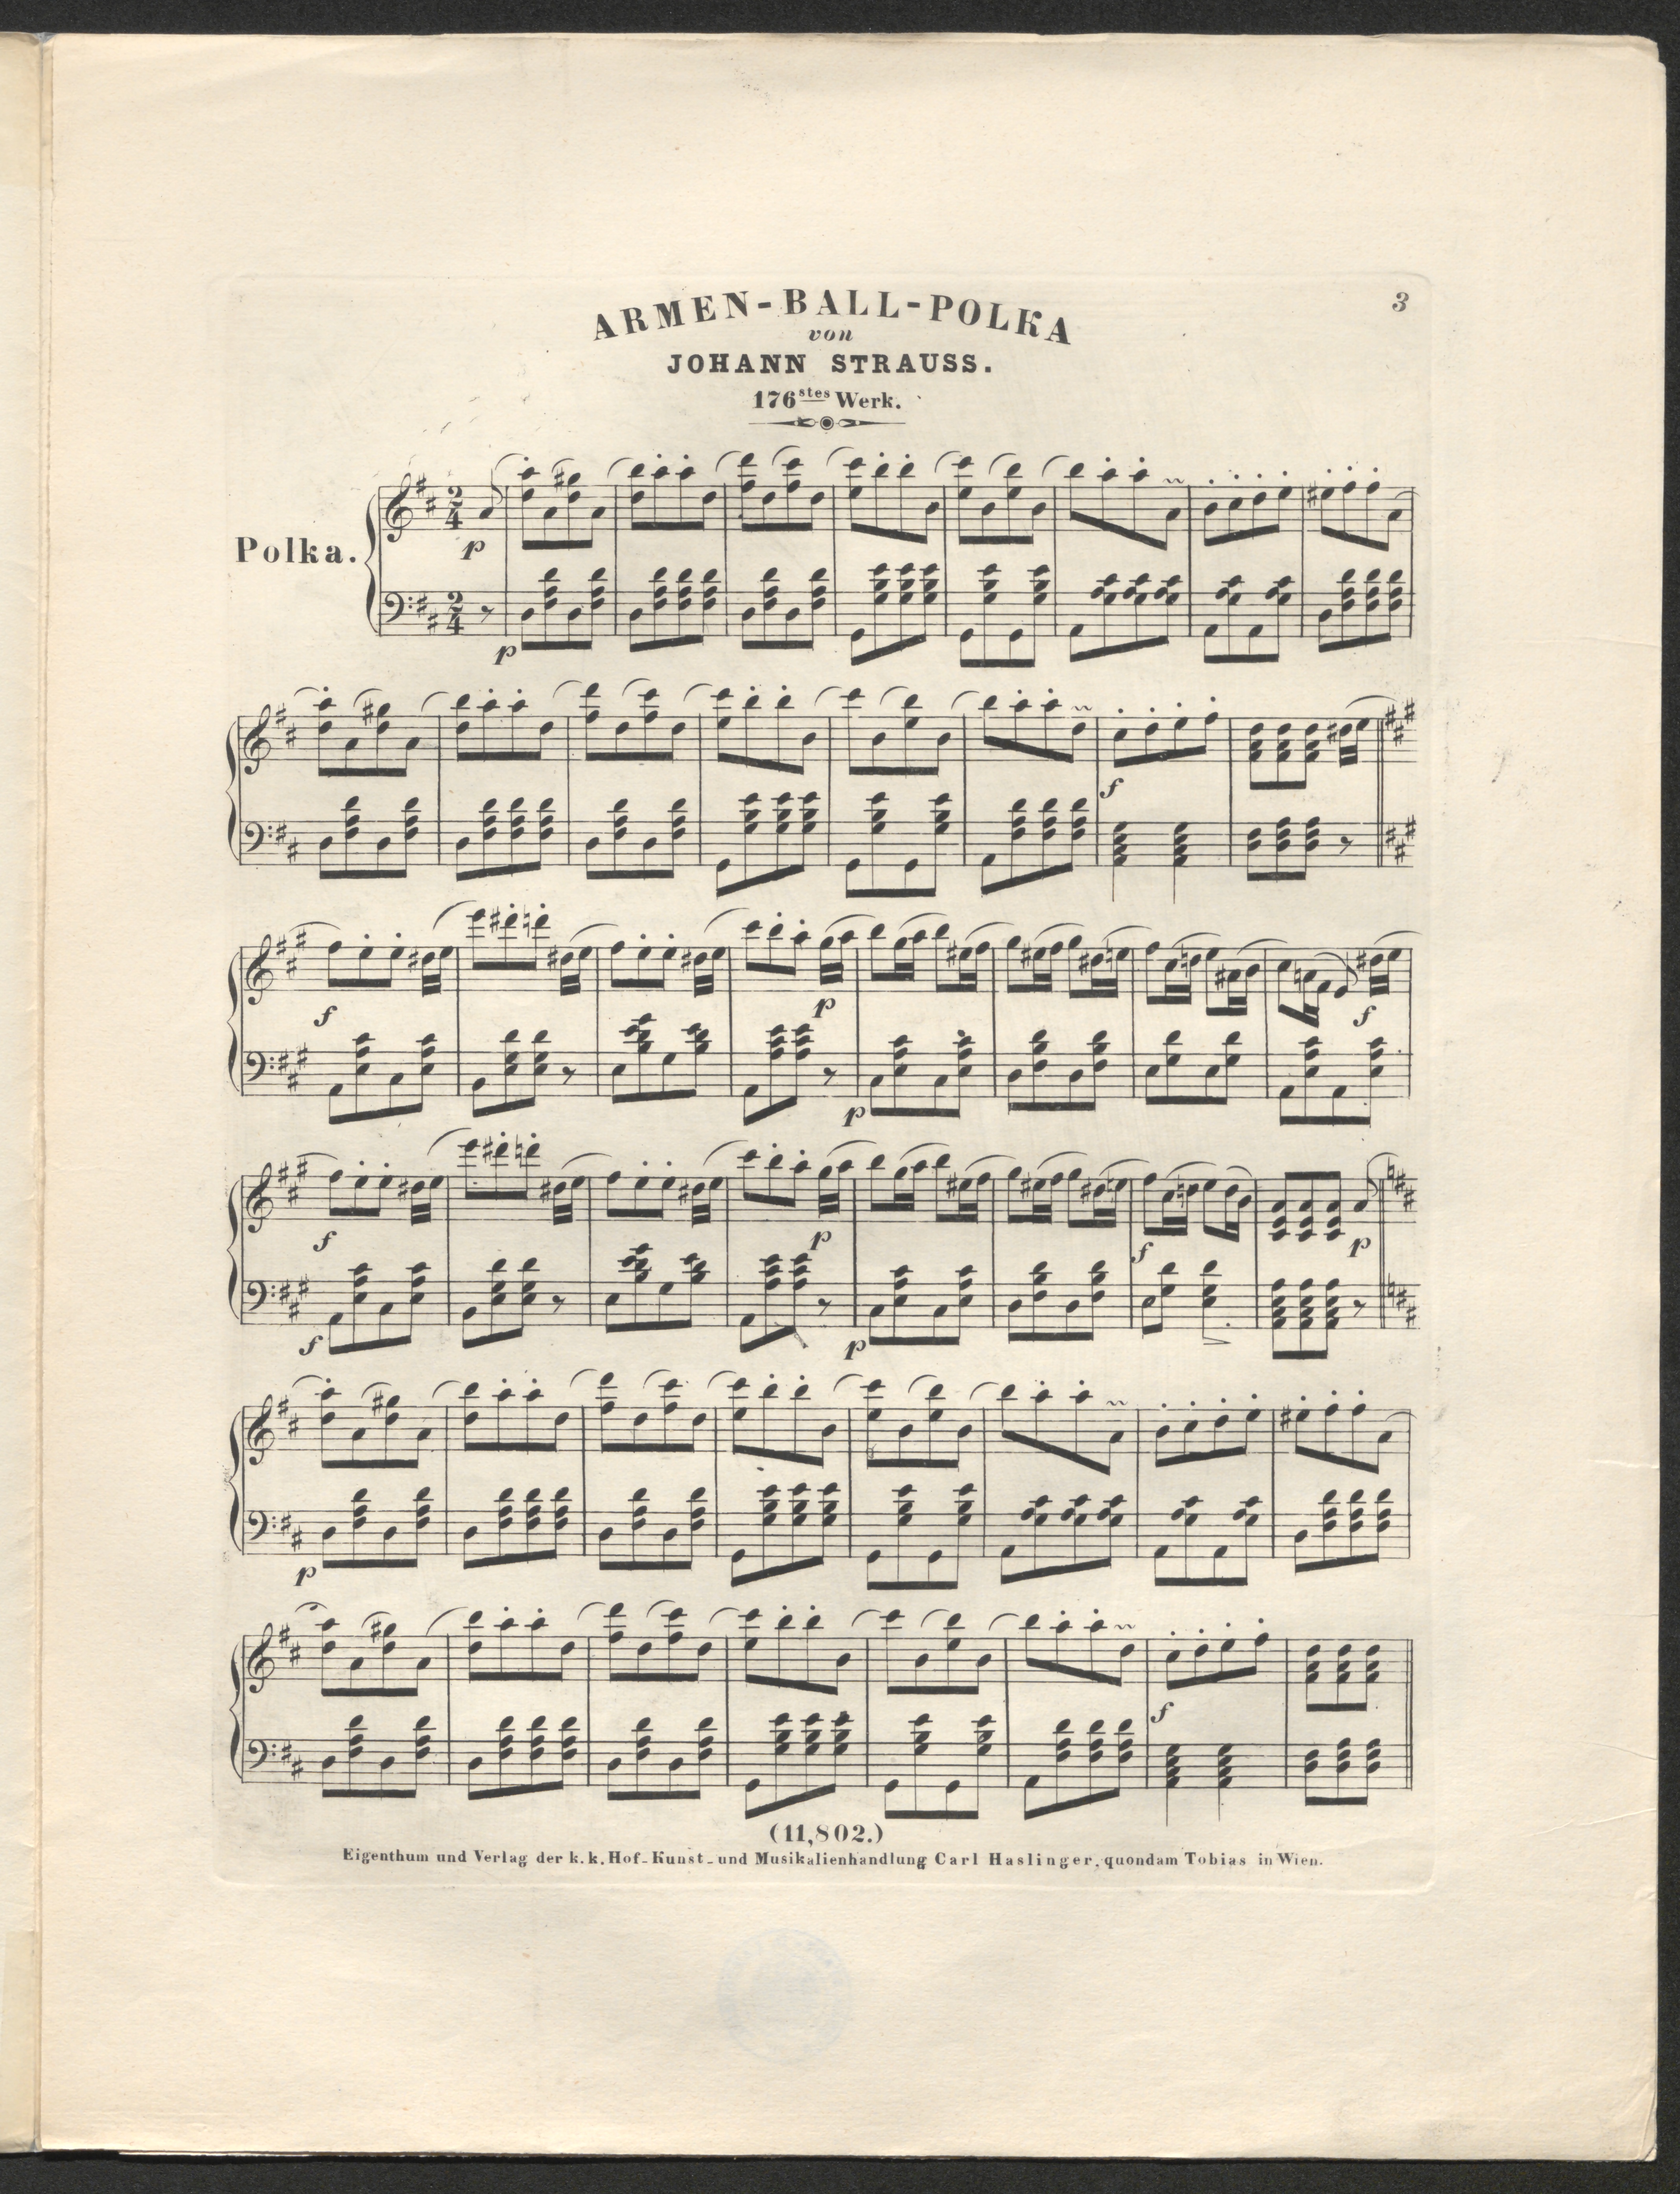 3
ARMEN-BALL-POLKA
von
JOHANN STRAUSS.
176stes Werk.
Polka.
2/4
p
2/4
p
f
f
p
f
p
f
p
f
p
f
p
p
f
(11,802.)
Eigenthum und Verlag der k.k. Hof-Kunst-und Musikalienhandlung Carl Haslinger, quondam Tobias in Wien.